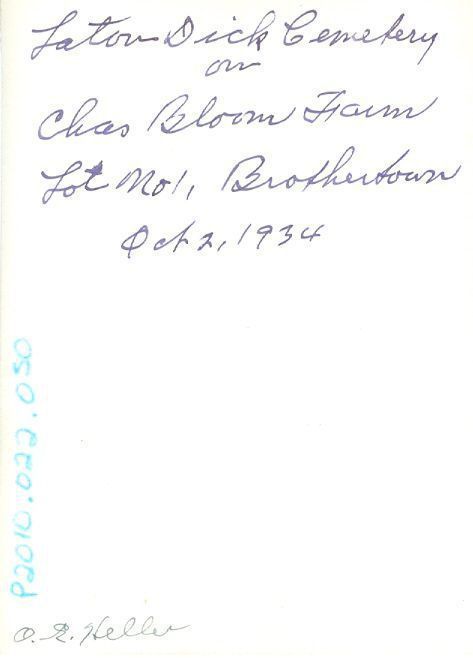 Laton Dick Cemetery
on
Chas Bloom Farm
Lot No 1, Brothertown
Oct 2, 1934
P2010.022.050
O. E. Heller